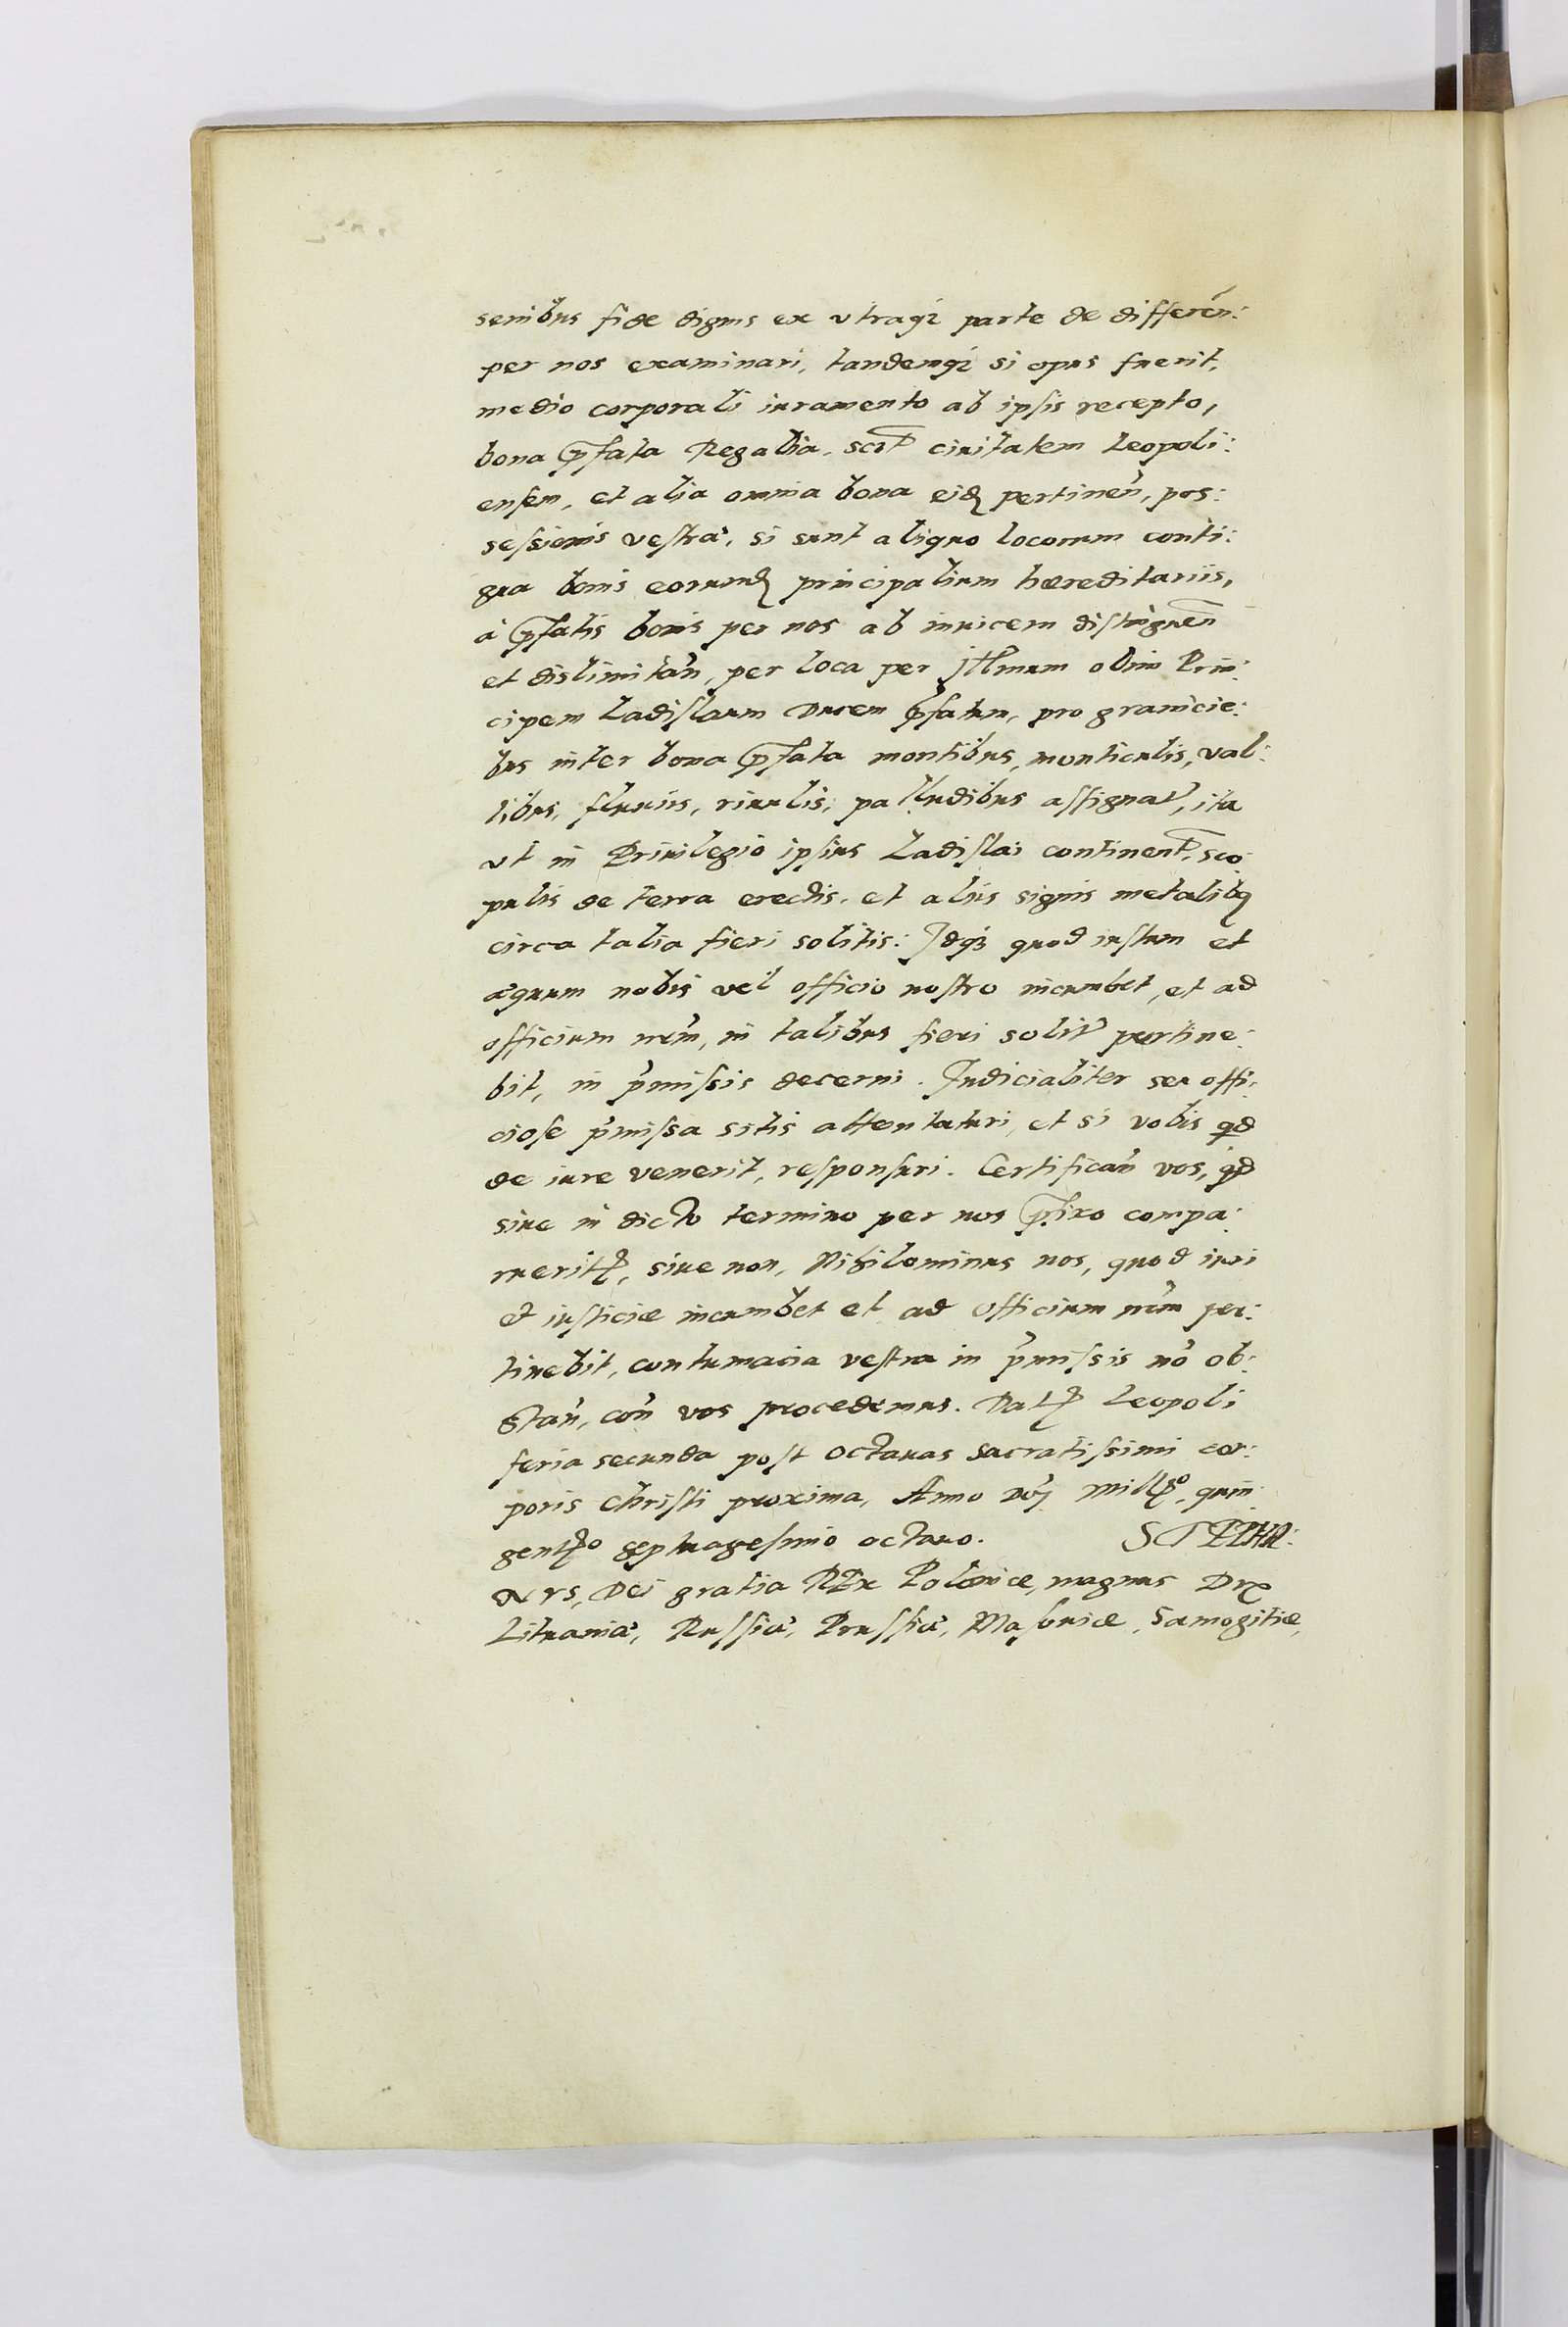 senibus fide dignis ex vtraq3 parte de differen̄:
per nos examinari, tandemq3 si opus fuerit,
medio corporali iuramento ab ipsis recepto,
bona p̄fata Regalia, scil̄t ciuitatem Leopoli:
ensem, et alia omnia bona eiđ pertinen̄, pos:
sessionis vestræ, si sunt aliquo locorum conti:
gua bonis eorunđ principalium hæreditariis,
à p̄fatis bonis per nos ab inuicem distinguen̄
et dislimitan̄, per loca per Jll̄mum olim Prin:
cipem Ladislaum Ducem p̄fatum, pro granicie:
bus inter bona p̄fata montibus, monticulis, val:
libus, fluuiis, riuulis, palludibus assignat̄, ita
vt in Priuilegio ipsius Ladislai continent̄, sco:
pulis de terra erectis, et aliis signis metalibq
circa talia fieri solitis: Jdq3 quod iustum et
æquum nobis vel officio nostro incumbet, et ad
officium nr̄m, in talibus fieri solit̄ pertine:
bit, in p̄missis decerni. Judicialiter seu offi:
ciose p̄missa sitis attentaturi, et si vobis qđ
de iure venerit, responsuri. Certifican̄ vos, qđ
siue in dicto termino per nos p̄fixo compa:
rueritꝭ, siue non, Nihilominus nos, quod iuri
et iusticiæ incumbet et ad officium nr̄m per:
tinebit, contumacia vestra in p̄missis nō ob:
stan̄, con̄ vos procedemus. Datꝭ Leopoli
feria secunda post octauas sacratissimi cor:
poris Christi proxima, Anno Dn̄j Millꝭo, quin:
gentꝭo septuagesimo octauo. STEPHA:
NVS, Dei gratia REx Poloniæ, magnus Dux
Lituaniæ, Russiæ, Prussiæ, Masouiæ, Samogitiæ,